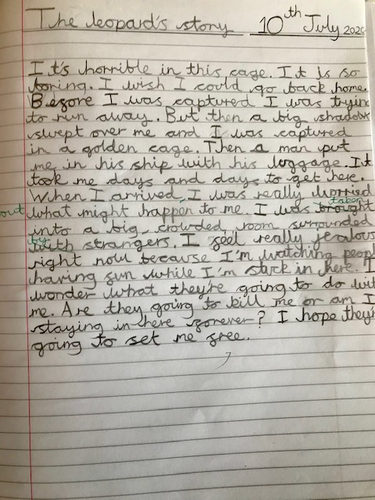 The leopard's story 10th July 202
It's horrible in this cage. It is so
boring. I wish I could go back home.
Before I was captured I was tryin
to run away. But then a big shadow
swept over me and I was captured
in a golden cage. Then a man put
me in his ship with his luggage. It
took me days and days to get here.
When I arrived, I was really worried
out what might happen to me. I was brought taken
into a big, crowded room surrounded
by with strangers. I feel really jealous
right now because I'm watching peop
having fun while I'm stuck in here. I
wonder what they're going to do wit
me. Are they going to kill me or am I
staying in here forever? I hope they'r
going to set me free.